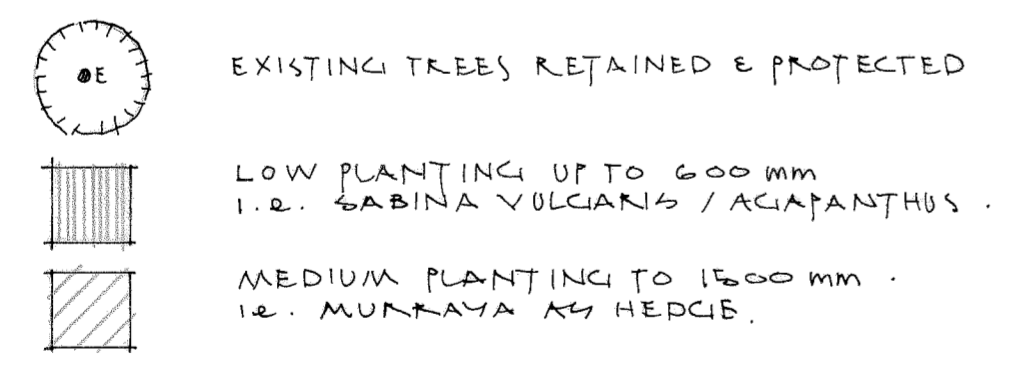 E
EXISTING TREES RETAINED & PROTECTED
LOW PLANTING UP TO 600 mm
i.e. SABINA VULGARIS / AGAPANTHUS.
MEDIUM PLANTING TO 1500 mm.
i.e. MURRAYA AS HEDGE.